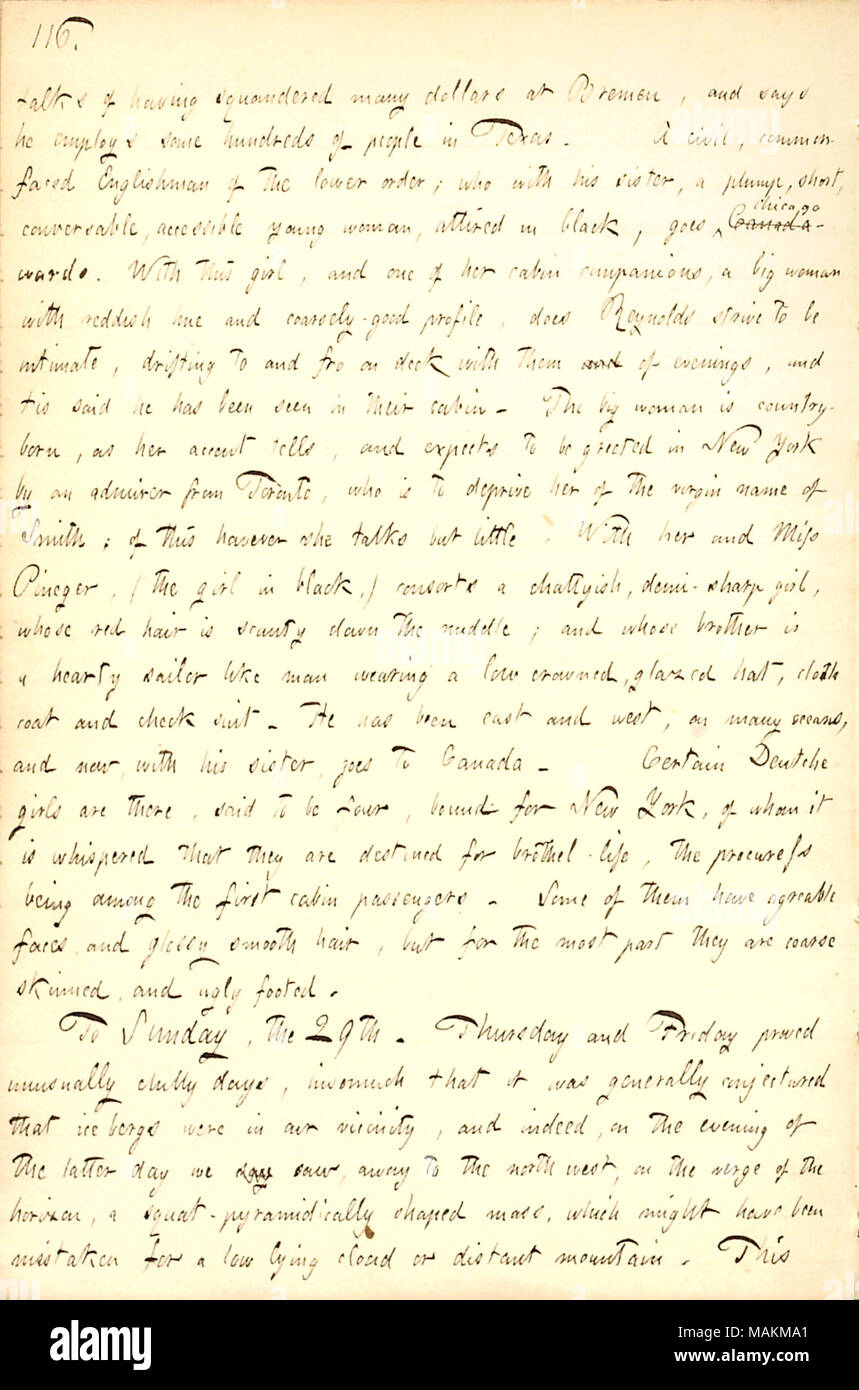 116.
talks of having squandered many dollars at Bremen, and says
he employs some hundreds of people in Texas. A civil, common-
faced Englishman of the lower order; who with his sister, a plump, short,
chicago
conversable, accessible young woman, attired in black, goes ‸ Canada-
wards. With this girl, and one of her cabin companions, a big woman
with reddish hue and coarsely-good profile, does Reynolds strive to be
intimate, drifting to and fro on deck with them and of evenings, and
tis said he has been seen in their cabin. The big woman is country-
born, as her accent tells, and expects to be greeted in New York
by an admirer from Toronto, who is to deprive her of the virgin name of
Smith; of this however she talks but little. With her and Miss
Pineger, (the girl in black,) consorts a chattyish, demi-sharp girl,
whose red hair is scanty down the middle; and whose brother is
a hearty sailor like man wearing a low crowned, glazed hat, cloth
coat and check suit. He has been east and west, on many oceans,
and now, with his sister, goes to Canada. Certain Deutche
girls are there, said to be four, bound for New York, of whom it
is whispered that they are destined for brothel-life, the procuress
being among the first cabin passengers. Some of them have agreable
faces, and glossy smooth hair, but for the most part they are coarse
skinned, and ugly footed.
To Sunday, the 29th. Thursday and Friday proved
unusually chilly days, insomuch that it was generally conjectured
that ice bergs were in our vicinity, and indeed, on the evening of
the latter day we say saw, away to the north west, on the verge of the
horizon, a squat-pyramidically shaped mass, which might have been
mistaken for a low lying cloud or distant mountain. This
alamy
Image ID: MAKMA1
www.alamy.com